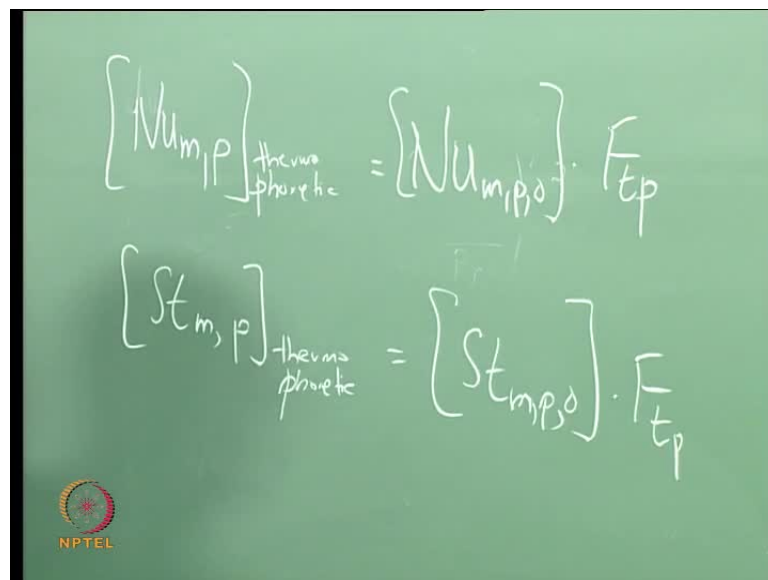 [Nu_{m,p}]_{thermo phoretic} = [Nu_{m,p,0}] · F_{tp}
[St_{m,p}]_{thermo phoretic} = [St_{m,p,0}] · F_{tp}
NPTEL